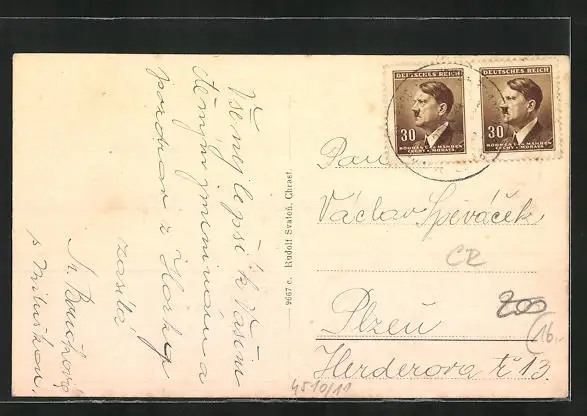 Vše nejlepší k Vašim
jmeninám a
pozdrav z Horky
zasílá
s Miluškou.
9667 c. Rudolf Svatoň, Chrast.
DEUTSCHES REICH
30
BÖHMEN U. MÄHREN
ČECHY A MORAVA
DEUTSCHES REICH
30
BÖHMEN U. MÄHREN
ČECHY A MORAVA
Pan
Václav Spěváček
CR
Plzeň
200
16.-
Herderova tř 13.
4510/11